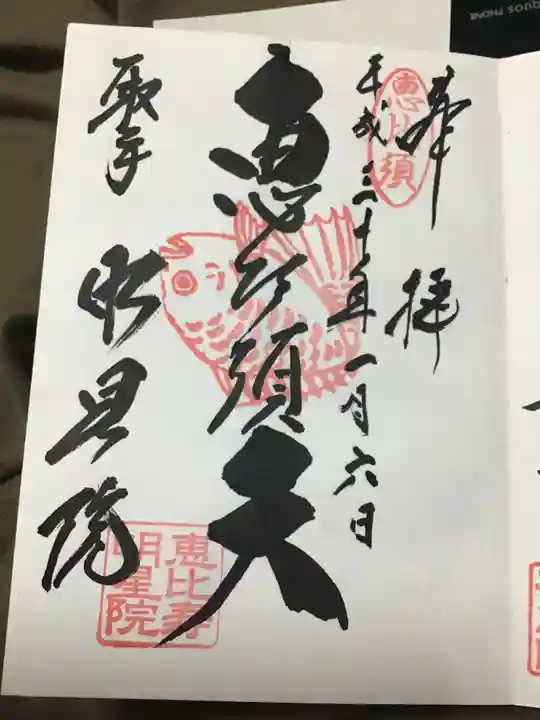 奉拝
恵比須
平成三十年一月六日
恵比須天
聖
明星院
恵比寿
明星院